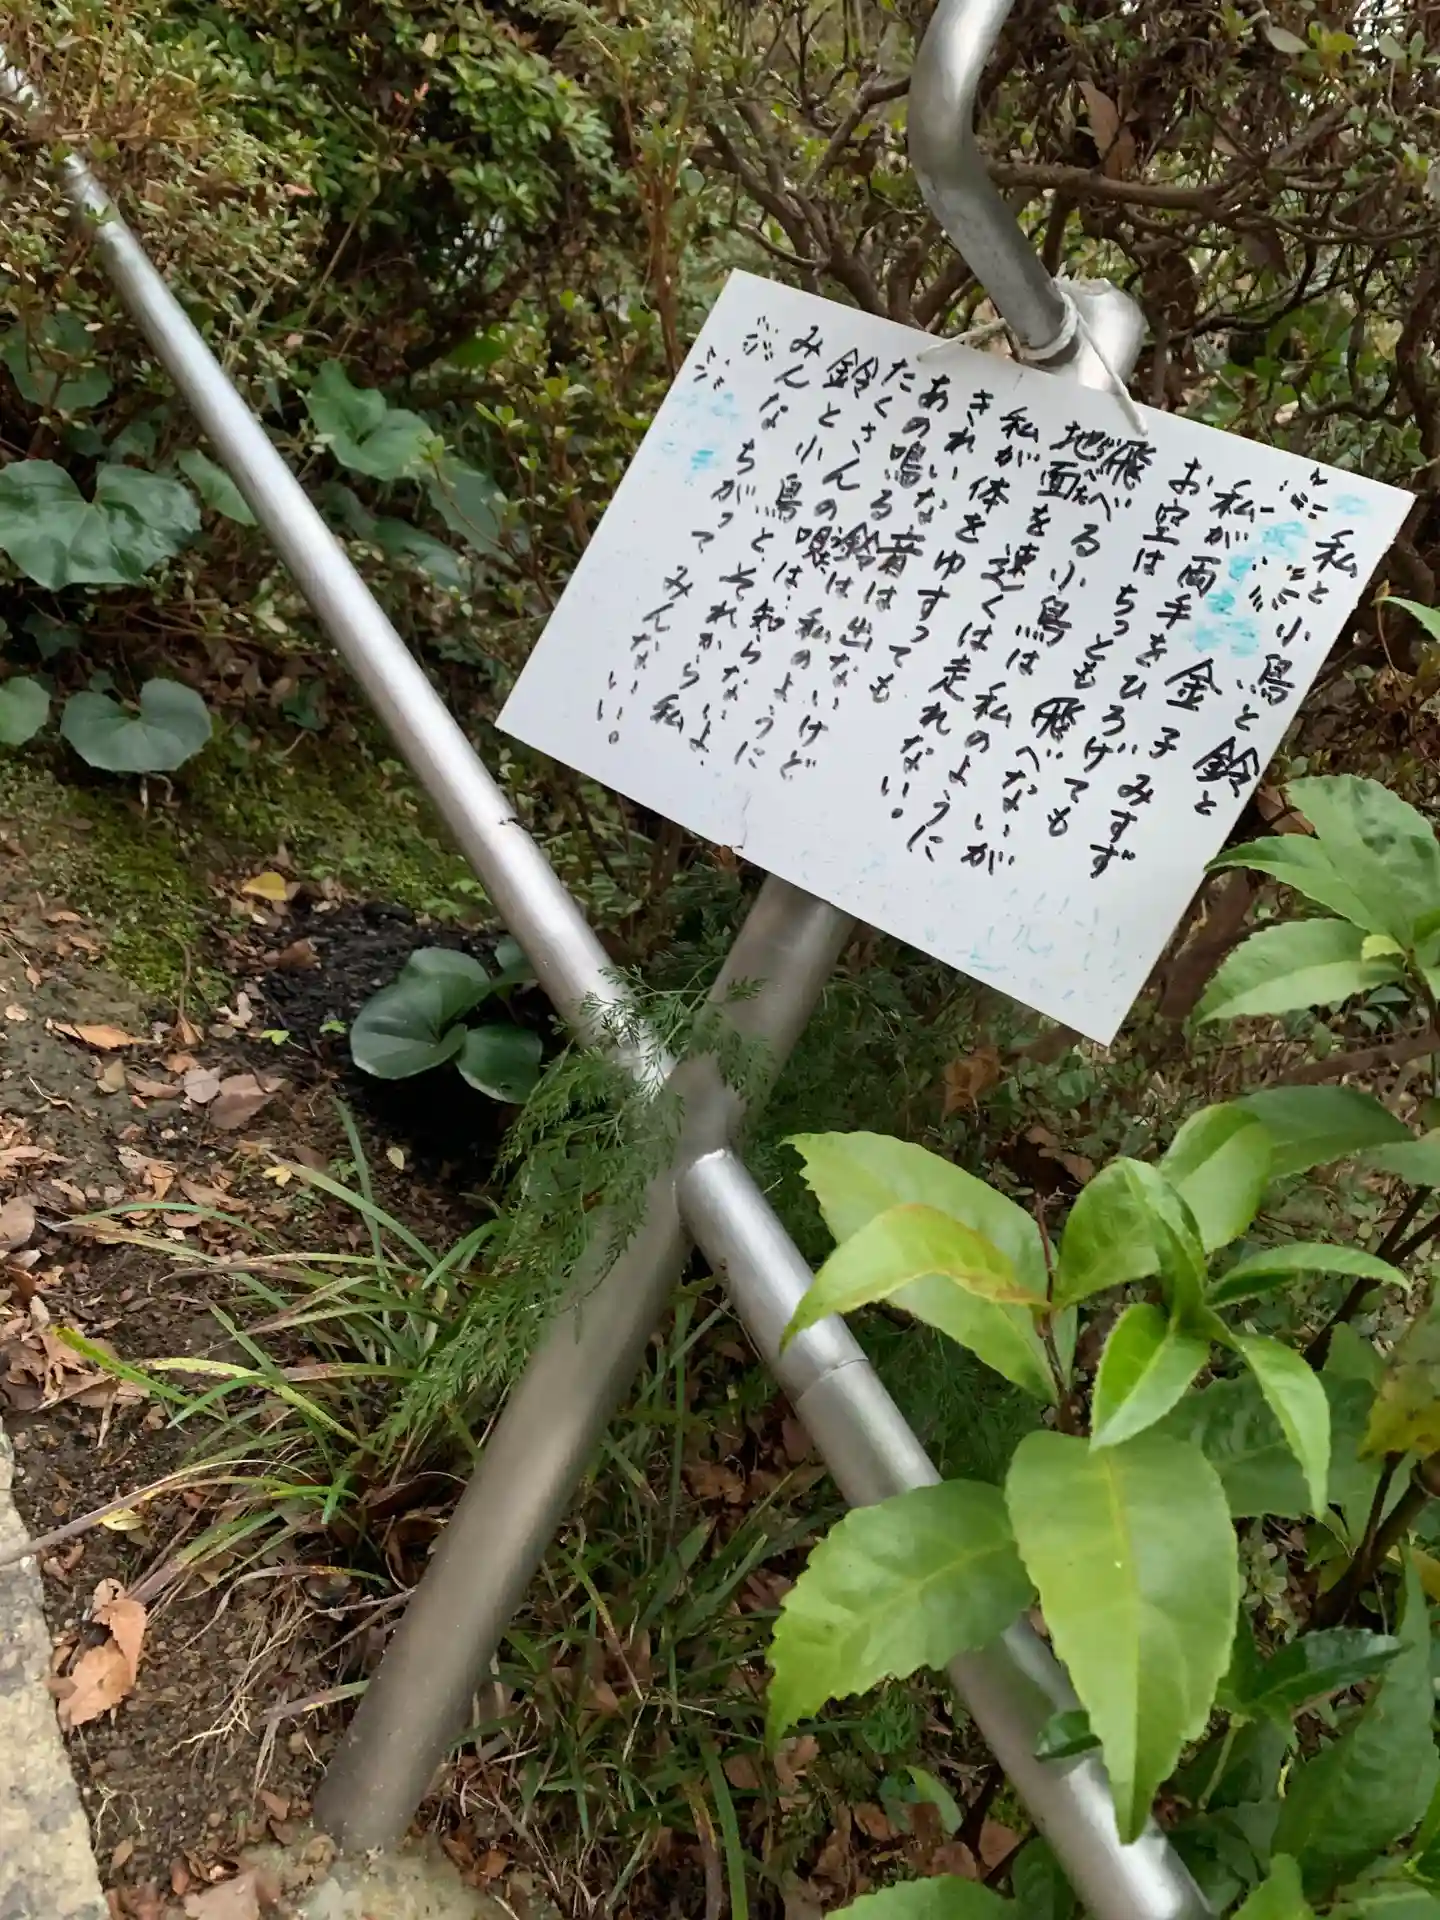 私と小鳥と鈴と
金子みすず
私が両手をひろげても
お空はちっとも飛べないが
飛べる小鳥は私のように
地面を速くは走れない。
私が体をゆすっても
きれいな音は出ないけど
あの鳴る鈴は私のように
たくさんの唄は知らないよ、
鈴と小鳥と、それから私
みんなちがってみんないい。